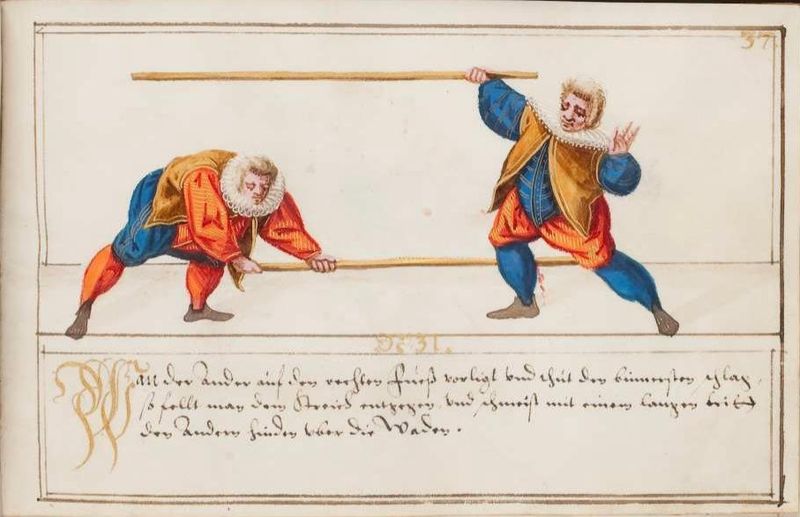 37.
No 31.
Wan der Ander auf den rechten Fueß vorligt vnd thut den Schlag,
so fellt man dem Streich entgegen, vnd schmeist mit einem langen
den Andern hinden vber die Waden.